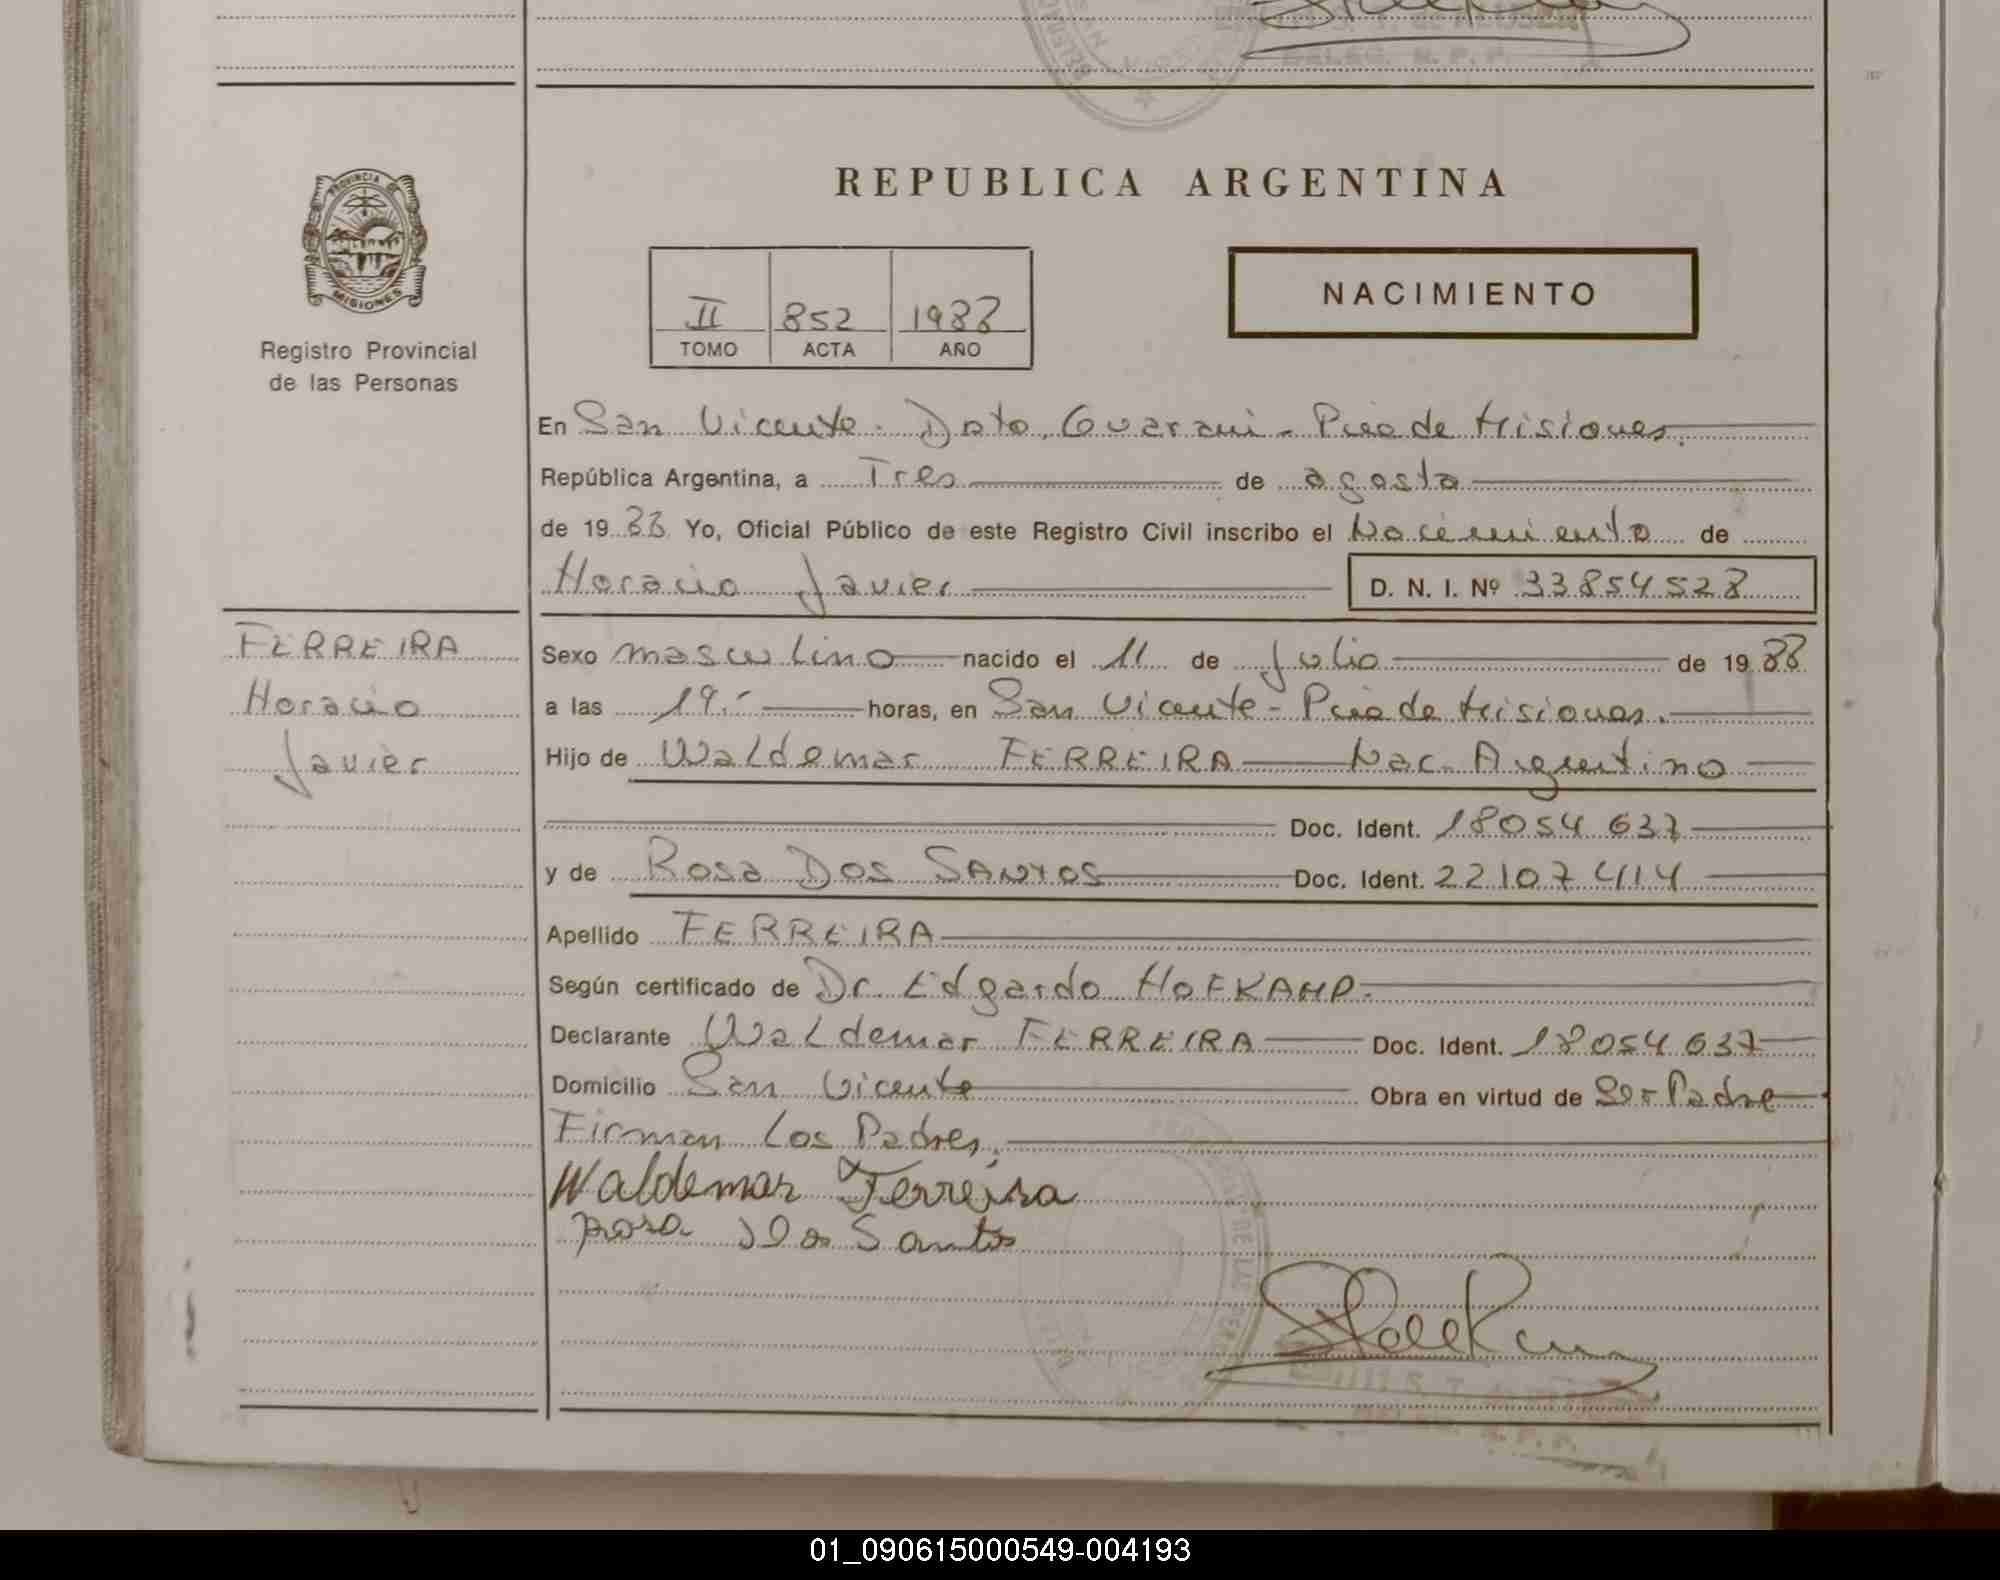 REPUBLICA ARGENTINA
PROVINCIA DE
MISIONES
Registro Provincial
de las Personas
II 852 1988
TOMO ACTA AÑO
NACIMIENTO
En San Vicente - Dpto. Guarani - Pcia de Misiones.
República Argentina, a Tres de agosto
de 19 88 Yo, Oficial Público de este Registro Civil inscribo el Nacimiento de
Horacio Javier D. N. I. Nº 33854528
FERREIRA
Horacio
Javier
Sexo masculino nacido el 11 de Julio de 19 88
a las 19.- horas, en San Vicente - Pcia de Misiones.
Hijo de Waldemar FERREIRA Nac. Argentino
Doc. Ident. 18054 637
y de Rosa DOS SANTOS Doc. Ident. 22107 414
Apellido FERREIRA
Según certificado de Dr. Edgardo HOFKAMP.
Declarante Waldemar FERREIRA Doc. Ident. 18054 637
Domicilio San Vicente Obra en virtud de Ser Padre
Firman Los Padres.
Waldemar Ferreira
rosa dos Santos
01_090615000549-004193